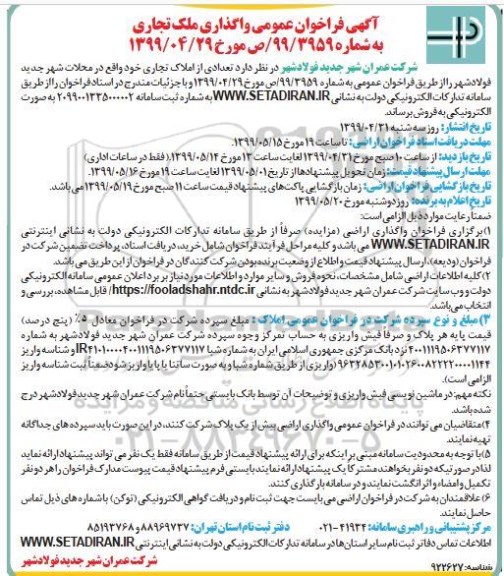 آگهی فراخوان عمومی واگذاری ملک تجاری
به شماره ۹۹/۳۹۵۹/ص مورخ ۱۳۹۹/۰۴/۲۹
شرکت عمران شهر جدید فولادشهر در نظر دارد تعدادی از املاک تجاری خود واقع در محلات شهر جدید
فولادشهر را از طریق فراخوان عمومی به شماره ۹۹/۳۹۵۹/ص مورخ ۱۳۹۹/۰۴/۲۹ و با جزئیات مندرج در اسناد فراخوان را از طریق
سامانه تدارکات الکترونیکی دولت به نشانی WWW.SETADIRAN.IR به شماره ثبت سامانه ۲۰۹۹۰۰۱۳۳۵۰۰۰۰۰۲ به صورت
الکترونیکی به فروش برساند.
تاریخ انتشار: روز سه شنبه ۱۳۹۹/۰۴/۳۱
مهلت دریافت اسناد فراخوان اراضی: تا ساعت ۱۹ مورخ ۱۳۹۹/۰۵/۱۵.
تاریخ بازدید: از ساعت ۱۰ صبح مورخ ۱۳۹۹/۰۴/۳۱ لغایت ساعت ۱۳ مورخ ۱۳۹۹/۰۵/۱۴.( فقط در ساعات اداری)
مهلت ارسال پیشنهاد قیمت: زمان تحویل پیشنهادها از تاریخ ۱۳۹۹/۰۵/۰۱ لغایت ساعت ۱۹ مورخ ۱۳۹۹/۰۵/۱۶.
تاریخ بازگشایی فراخوان اراضی: زمان بازگشایی پاکت‌های پیشنهاد قیمت ساعت ۱۱ صبح مورخ ۱۳۹۹/۰۵/۱۹ می‌باشد.
تاریخ اعلام به برنده: روز دوشنبه مورخ ۱۳۹۹/۰۵/۲۰
ضمنا رعایت موارد ذیل الزامی است:
۱) برگزاری فراخوان واگذاری اراضی (مزایده) صرفاً از طریق سامانه تدارکات الکترونیکی دولت به نشانی اینترنتی
WWW.SETADIRAN.IR می باشد و کلیه مراحل فرآیند فراخوان شامل خرید، دریافت اسناد، پرداخت تضمین شرکت در
فراخوان (ودیعه)، ارسال پیشنهاد قیمت و اطلاع از وضعیت برنده بودن شرکت کنندگان در فراخوان از این طریق می باشد.
۲) کلیه اطلاعات اراضی شامل مشخصات، نحوه فروش و سایر موارد و اطلاعات مورد نیاز بر برد اعلان عمومی سامانه الکترونیکی
دولت و وب سایت شرکت عمران شهر جدید فولادشهر به نشانی https://fooladshahr.ntdc.ir/ قابل مشاهده، بررسی و
انتخاب می‌باشد.
۳) مبلغ و نوع سپرده شرکت در فراخوان عمومی املاک: مبلغ سپرده شرکت در فراخوان معادل ۵٪ (پنج درصد)
قیمت پایه هر پلاک و صرفاً فیش واریزی به حساب تمرکز وجوه سپرده شرکت عمران شهر جدید فولادشهر به شماره
۴۰۰۱۱۱۹۵۰۶۳۷۷۱۱۷ نزد بانک مرکزی جمهوری اسلامی ایران به شماره شبا IR۴۱۰۱۰۰۰۰۴۰۰۱۱۱۹۵۰۶۳۷۷۱۱۷ و شناسه واریز
(واریز از طریق شماره شبا و به صورت ساتنا یا پایا واریز شود ضمناً ثبت شناسه واریز
الزامی است).
نکته مهم: در ماشین نویسی فیش واریزی و توضیحات آن توسط بانک بایستی حتماً نام شرکت عمران شهر جدید فولادشهر درج
شده باشد.
۴) متقاضیان می توانند در فراخوان عمومی واگذاری اراضی بیش از یک پلاک شرکت کنند، در این صورت باید سپرده های جداگانه
تهیه نمایند.
۵) با توجه به محدودیت سامانه مبنی بر اینکه برای ارائه پیشنهاد قیمت از طریق سامانه فقط یک نفر می تواند پیشنهاد ارائه نماید
لذا در صورتیکه دو نفر بخواهند مشترکا یک پیشنهاد ارائه نمایند بایستی فرم پیشنهاد قیمت پیوست مدارک فراخوان را هر دو نفر
تکمیل و امضاء و اثر انگشت نمایند و در سامانه بارگذاری کنند.
۶) علاقمندان به شرکت در فراخوان اراضی می بایست جهت ثبت نام و دریافت گواهی الکترونیکی (توکن) با شماره های ذیل تماس
حاصل نمایند.
مرکز پشتیبانی و راهبری سامانه: ۴۱۹۳۴-۰۲۱ دفتر ثبت نام استان تهران: ۸۸۹۶۹۷۳۷ و ۸۵۱۹۳۷۶۸
اطلاعات تماس دفاتر ثبت نام سایر استان‌ها در سامانه تدارکات الکترونیکی دولت به نشانی اینترنتی WWW.SETADIRAN.IR
شرکت عمران شهر جدید فولادشهر
شناسه: ۹۲۲۶۲۷
پایگاه اطلاع رسانی مناقصه و مزایده
۰۲۱-۸۸۳۴۹۶۷۰-۵